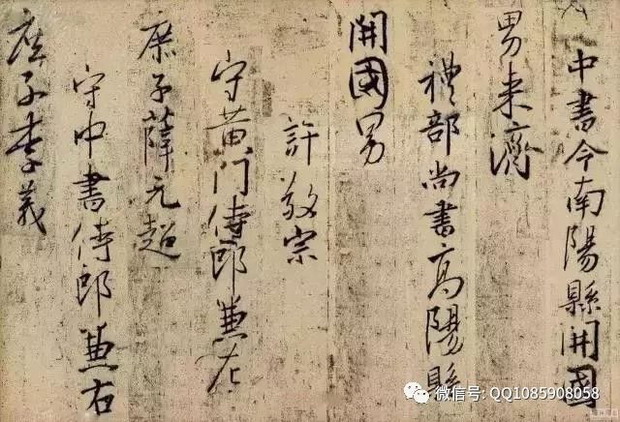 中書令南陽縣開國
男来濟
禮部尚書高陽縣
開國男
許敬宗
守黄门侍郎兼左
庶子薛元超
守中書侍郎兼右
庶子李義
微信号: QQ1085908058